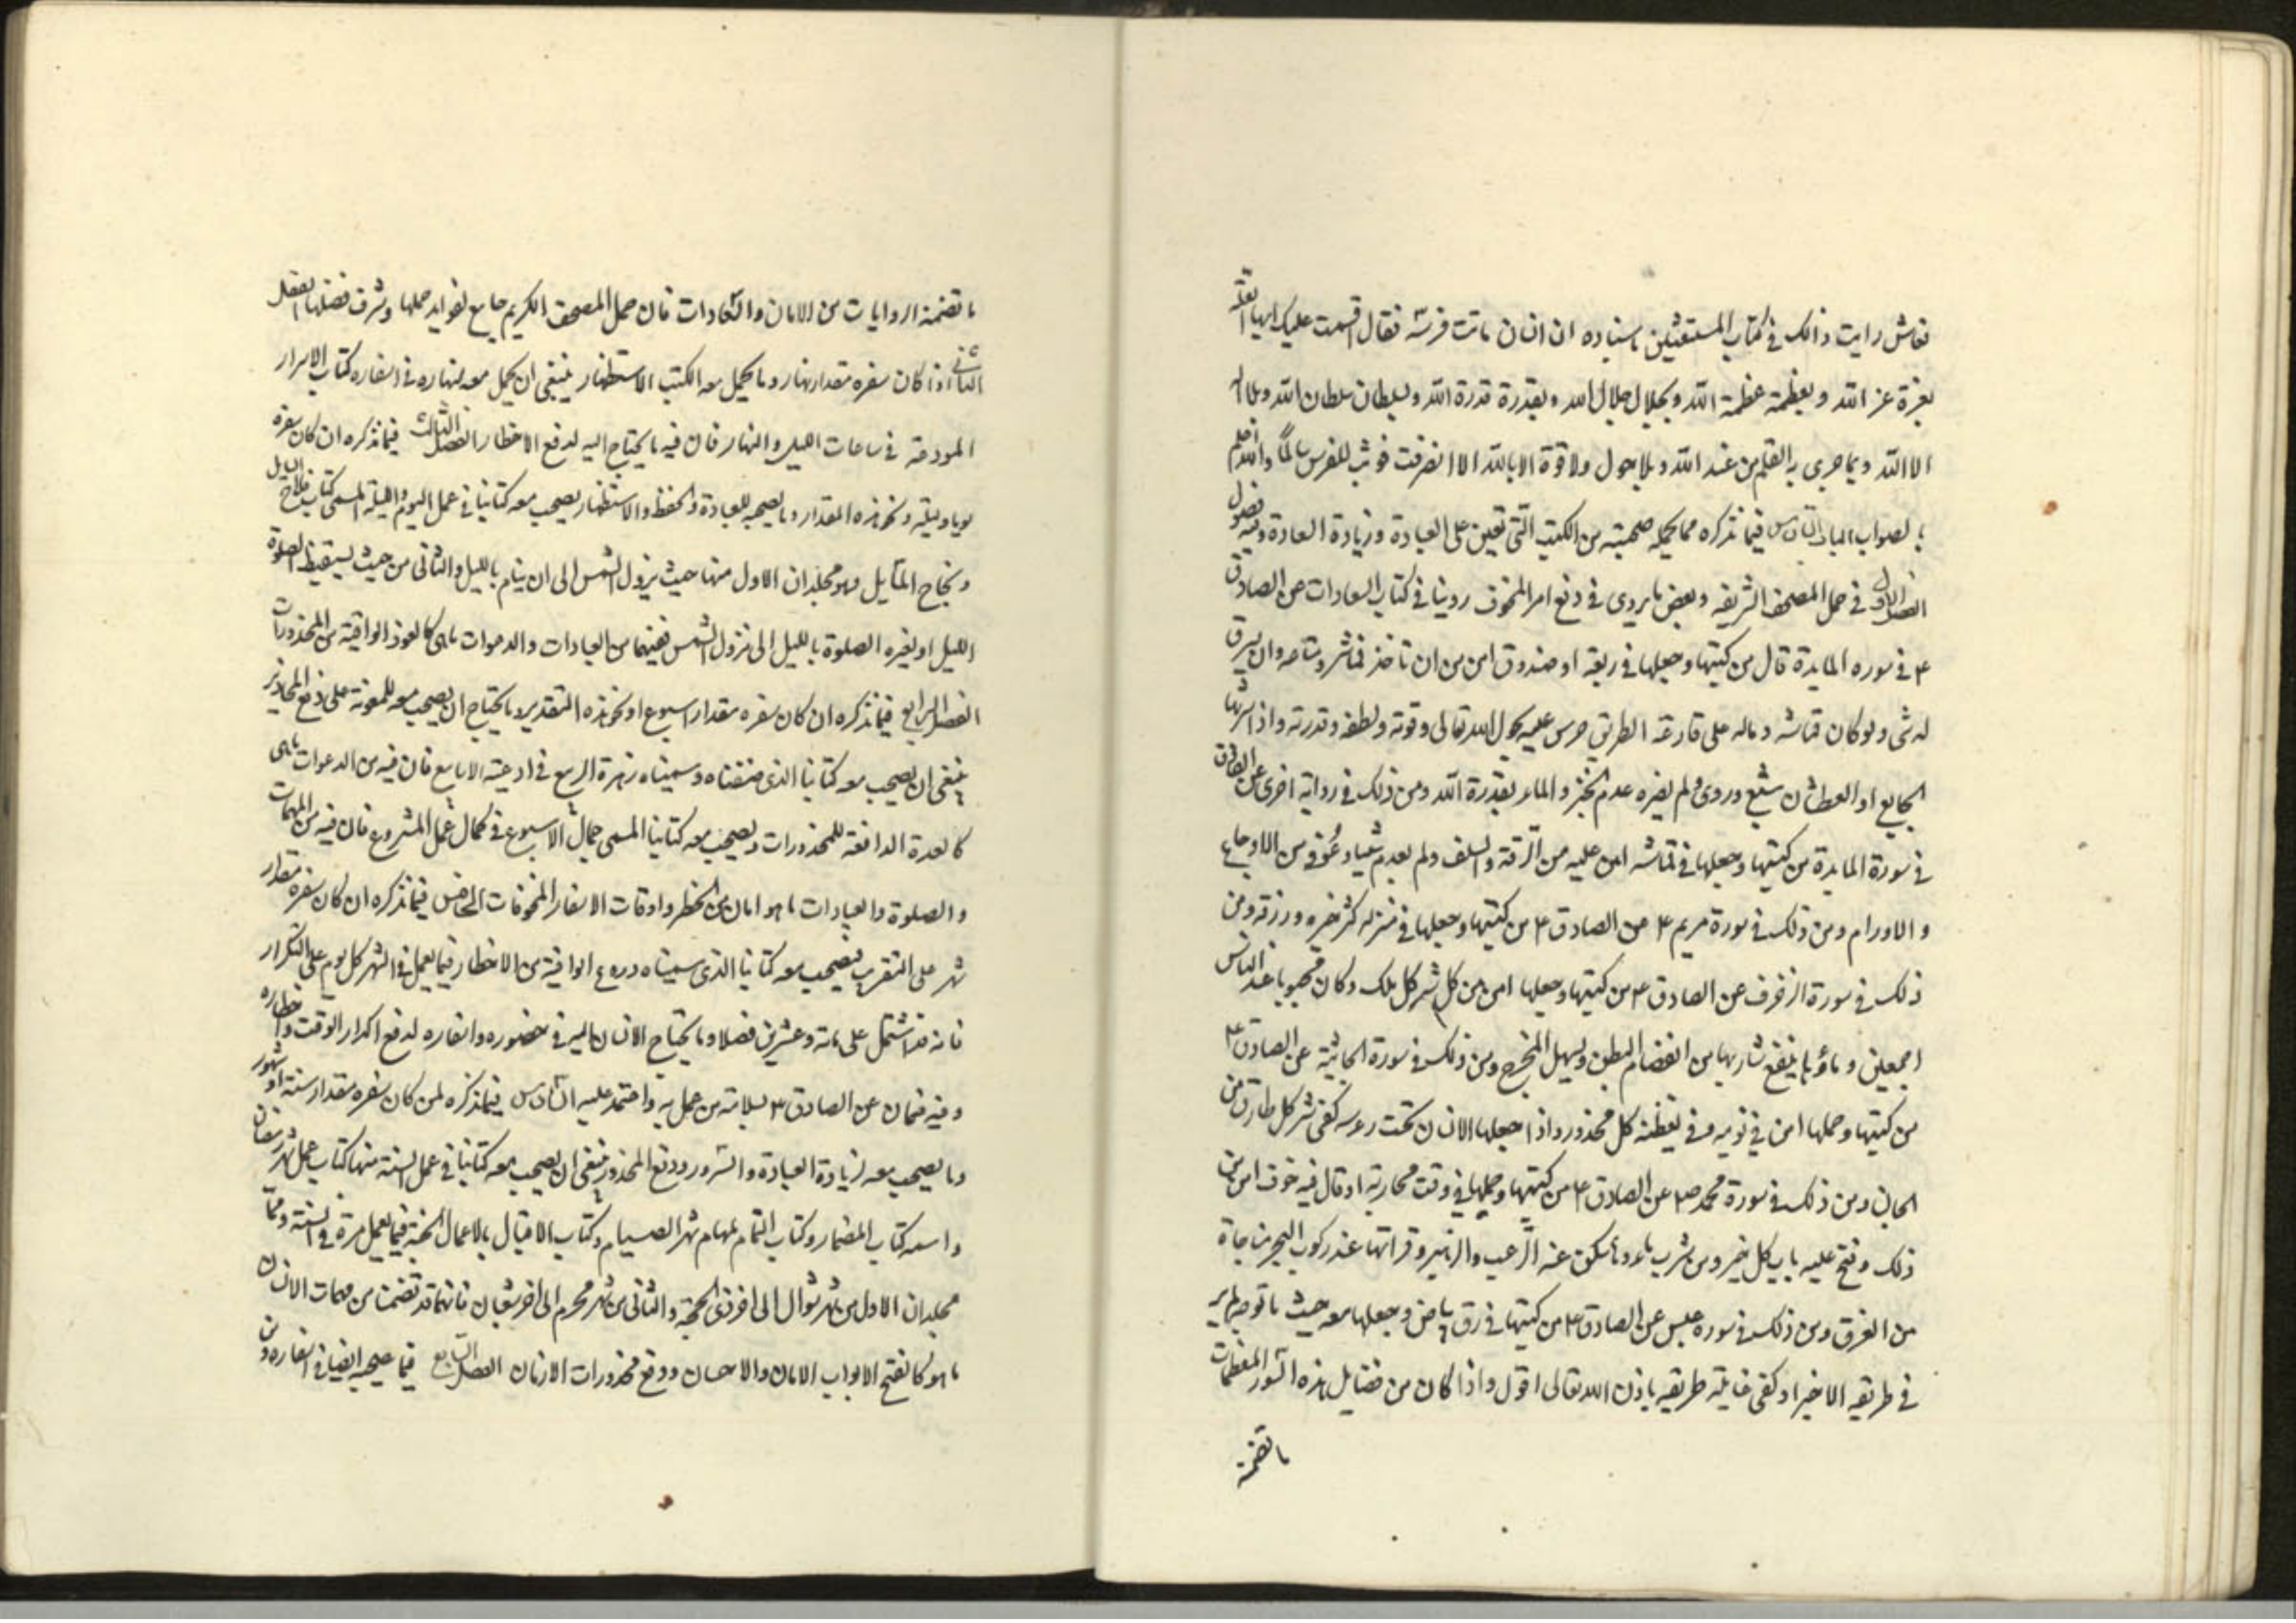 فعاش رايت ذالك في كتاب المستغثين باسناده ان انسان ماتت فرسه فقال اقسمت عليك ايها العلة
بعزة عز الله و بعظمة عظمة الله و بجلال جلال الله و بقدرة قدرة الله و بسلطان سلطان الله و بلا اله
الا الله و بما جرى به القلم من عند الله و بلا حول ولا قوة الا بالله الا انصرفت فوثب للفرس سالماً والله اعلم
بالصواب الباب السادس فيما نذكره مما يحمله صحبته من الكتب التي تعين على العبادة و زيادة السعادة وفيه فصول
الفصل الاول في حمل المصحف الشريفه وبعض ما يروى في دفع امر المخوف روينا في كتاب السعادات عن الصادق
ع في سوره المايدة قال من كتبها وجعلها في ربعة او صندوق امن من ان تاخذ قماشه و متاعه وان يسرق
له شى ولو كان قماشه و ماله على قارعة الطريق حرس عليه بحول الله تعالى وقوته ولطفه وقدرته واذا شربها
الجايع او العطشان شبع وروى ولم يضره عدم الخبز والماء بقدرة الله ومن ذلك في رواية اخرى عن الصادق
في سورة المايدة من كتبها وجعلها في قماشه امن عليه من السرقة والتلف ولم يعدم شيئا وعُوفى من الاوجاع
و الاورام ومن ذلك في سورة مريم ع عن الصادق ع من كتبها وجعلها في منزله كثر خيره ورزقه ومن
ذلك في سورة الزخرف عن الصادق ع من كتبها وجعلها امن من كل شر كل ملك وكان محبوبا عند الناس
اجمعين و ماؤها ينفع شاربها من انفصام البطن ويسهل المخرج ومن ذلك في سورة الجاثية عن الصادق ع
من كتبها وحملها امن في نومه وفي يقظته كل محذور واذا جعلها الانسان تحت راسه كفى شر كل طارق من
الجان ومن ذلك في سورة محمد ص عن الصادق ع من كتبها وحملها في وقت محاربة او قتال فيه خوف امن من
ذلك وفتح عليه باب كل خير ومن شرب ماءها سكن عنه الرعب والزحير وقراتها عند ركوب البحر منجاة
من الغرق ومن ذلك في سوره عبس عن الصادق ع من كتبها في رق بياض وجعلها معه حيث ما توجه لم ير
في طريقه الا خيرا وكفى غايلة طريقه باذن الله تعالى اقول واذا كان من فضايل هذه السور المعظمات
ما تضمنه
ما تضمنه الروايات من الامان والسعادات فان حمل المصحف الكريم جامع لفوايد حملها وشرف فضلها الفصل
الثانى اذا كان سفره مقدار نهار وما يحمل معه الكتب الاستظهار ينبغى ان يحمل معه نهاره في اسفاره كتاب الاسرار
المودعة في ساعات الليل والنهار فان فيه ما يحتاج اليه لدفع الاخطار الفصل الثالث فيما نذكره ان كان سفره
يوما وليلة و نحو هذه المقدار وما يصحبه للعبادة والحفظ والاستظهار يصحب معه كتابنا في عمل اليوم والليلة المسمى كتاب فلاح السايل
ونجاح المسايل وهو مجلدان الاول منها حيث يزول الشمس الى ان ينام بالليل والثانى من حيث يستيقظ لصلوة
الليل او لغيره الصلوة بالليل الى نزول الشمس ففيهما من العبادات والدعوات ما هى كالعوذ الواقية من المحذورات
الفصل الرابع فيما نذكره ان كان سفره مقدار اسبوع او نحو هذه التقدير وما يحتاج ان يصحب معه للمعونة على دفع المحاذير
ينبغى ان يصحب معه كتابنا الذى صنفناه وسميناه زهرة الربيع في ادعية الاسابيع فان فيه من الدعوات ما هى
كالعدة الدافعة للمحذورات ويصحب معه كتابنا المسمى جمال الاسبوع في كمال عمل المشروع فان فيه من المهمات
والصلوة والعبادات ما هو امان من الخطر واوقات الاسفار المخوفات الخامس فيما نذكره ان كان سفره مقدار
شهر على التقريب فيصحب معه كتابنا الذى سميناه دروع الواقية من الاخطار فيما يعمل في الشهر كل يوم على التكرار
فانه قد اشتمل على مائة وعشرين فصلا وما يحتاج الانسان اليه في حضوره واسفاره لدفع اكدار الوقت واخطاره
وفيه ضمان عن الصادق ع بسلامة من عمل به واعتمد عليه السادس فيما نذكره لمن كان سفره مقدار سنة او شهور
وما يصحب معه لزيادة العبادة والسرور ودفع المحذور ينبغى ان يصحب معه كتابنا في عمل السنة منها كتاب عمل شهر رمضان
واسمه كتاب المضمار وكتاب التمام لمهام شهر الصيام وكتاب الاقبال بالاعمال الحسنة فيما يعمل مرة في السنة وهما
مجلدان الاول من شهر شوال الى اخر ذى الحجة والثانى من شهر محرم الى اخر شعبان فانهما قد تضمنت من مهمات الانسان
ما هو كالفتح لابواب الامان والاحسان ودفع محذورات الازمان الفصل السابع فيما يصحبه ايضا في اسفاره من